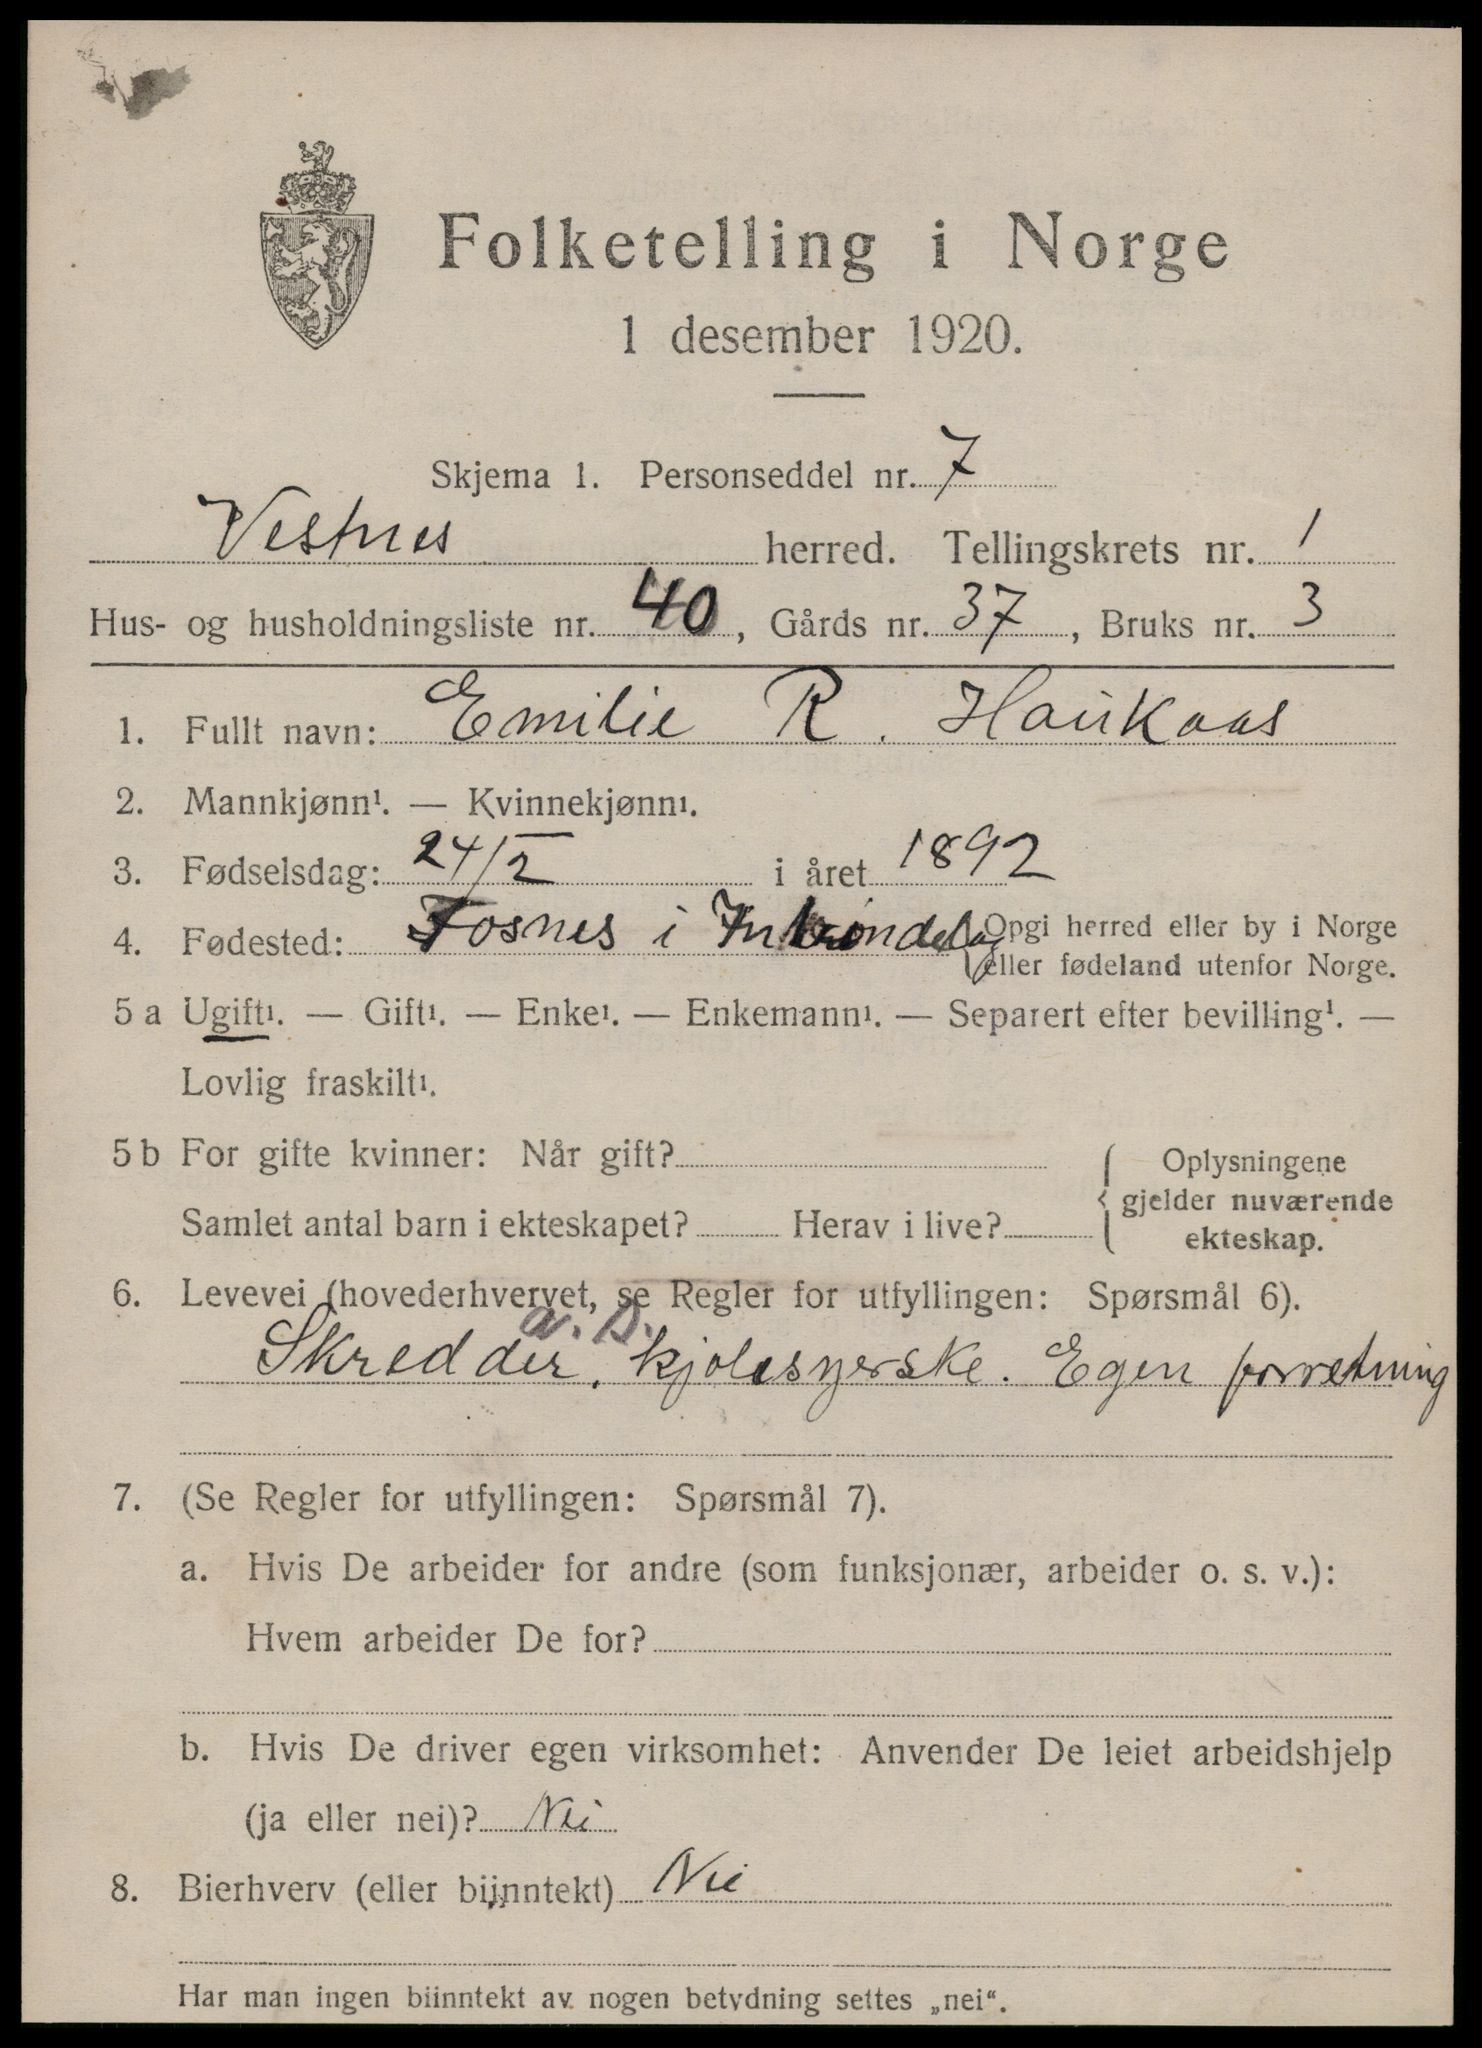 Folketelling i Norge
1 desember 1920.
Skjema 1. Personseddel nr. 7
Vestnes herred. Tellingskrets nr. 1
Hus- og husholdningsliste nr. 40, Gårds nr. 37, Bruks nr. 3
1. Fullt navn: Emilie R. Haukaas
2. Mannkjønn¹. — Kvinnekjønn¹.
3. Fødselsdag: 24/2 i året 1892
4. Fødested: Fosnes i Intrøndelag { Opgi herred eller by i Norge
eller fødeland utenfor Norge.
5 a Ugift¹. — Gift¹. — Enke¹. — Enkemann¹. — Separert efter bevilling¹. —
Lovlig fraskilt¹.
5 b For gifte kvinner: Når gift?
Samlet antal barn i ekteskapet? Herav i live?
{ Oplysningene
gjelder nuværende
ekteskap.
6. Levevei (hovederhvervet, se Regler for utfyllingen: Spørsmål 6).
a. D.
Skredder, kjolesyerske. Egen forretning
7. (Se Regler for utfyllingen: Spørsmål 7).
a. Hvis De arbeider for andre (som funksjonær, arbeider o. s. v.):
Hvem arbeider De for?
b. Hvis De driver egen virksomhet: Anvender De leiet arbeidshjelp
(ja eller nei)? Nei
8. Bierhverv (eller biinntekt) Nei
Har man ingen biinntekt av nogen betydning settes „nei“.